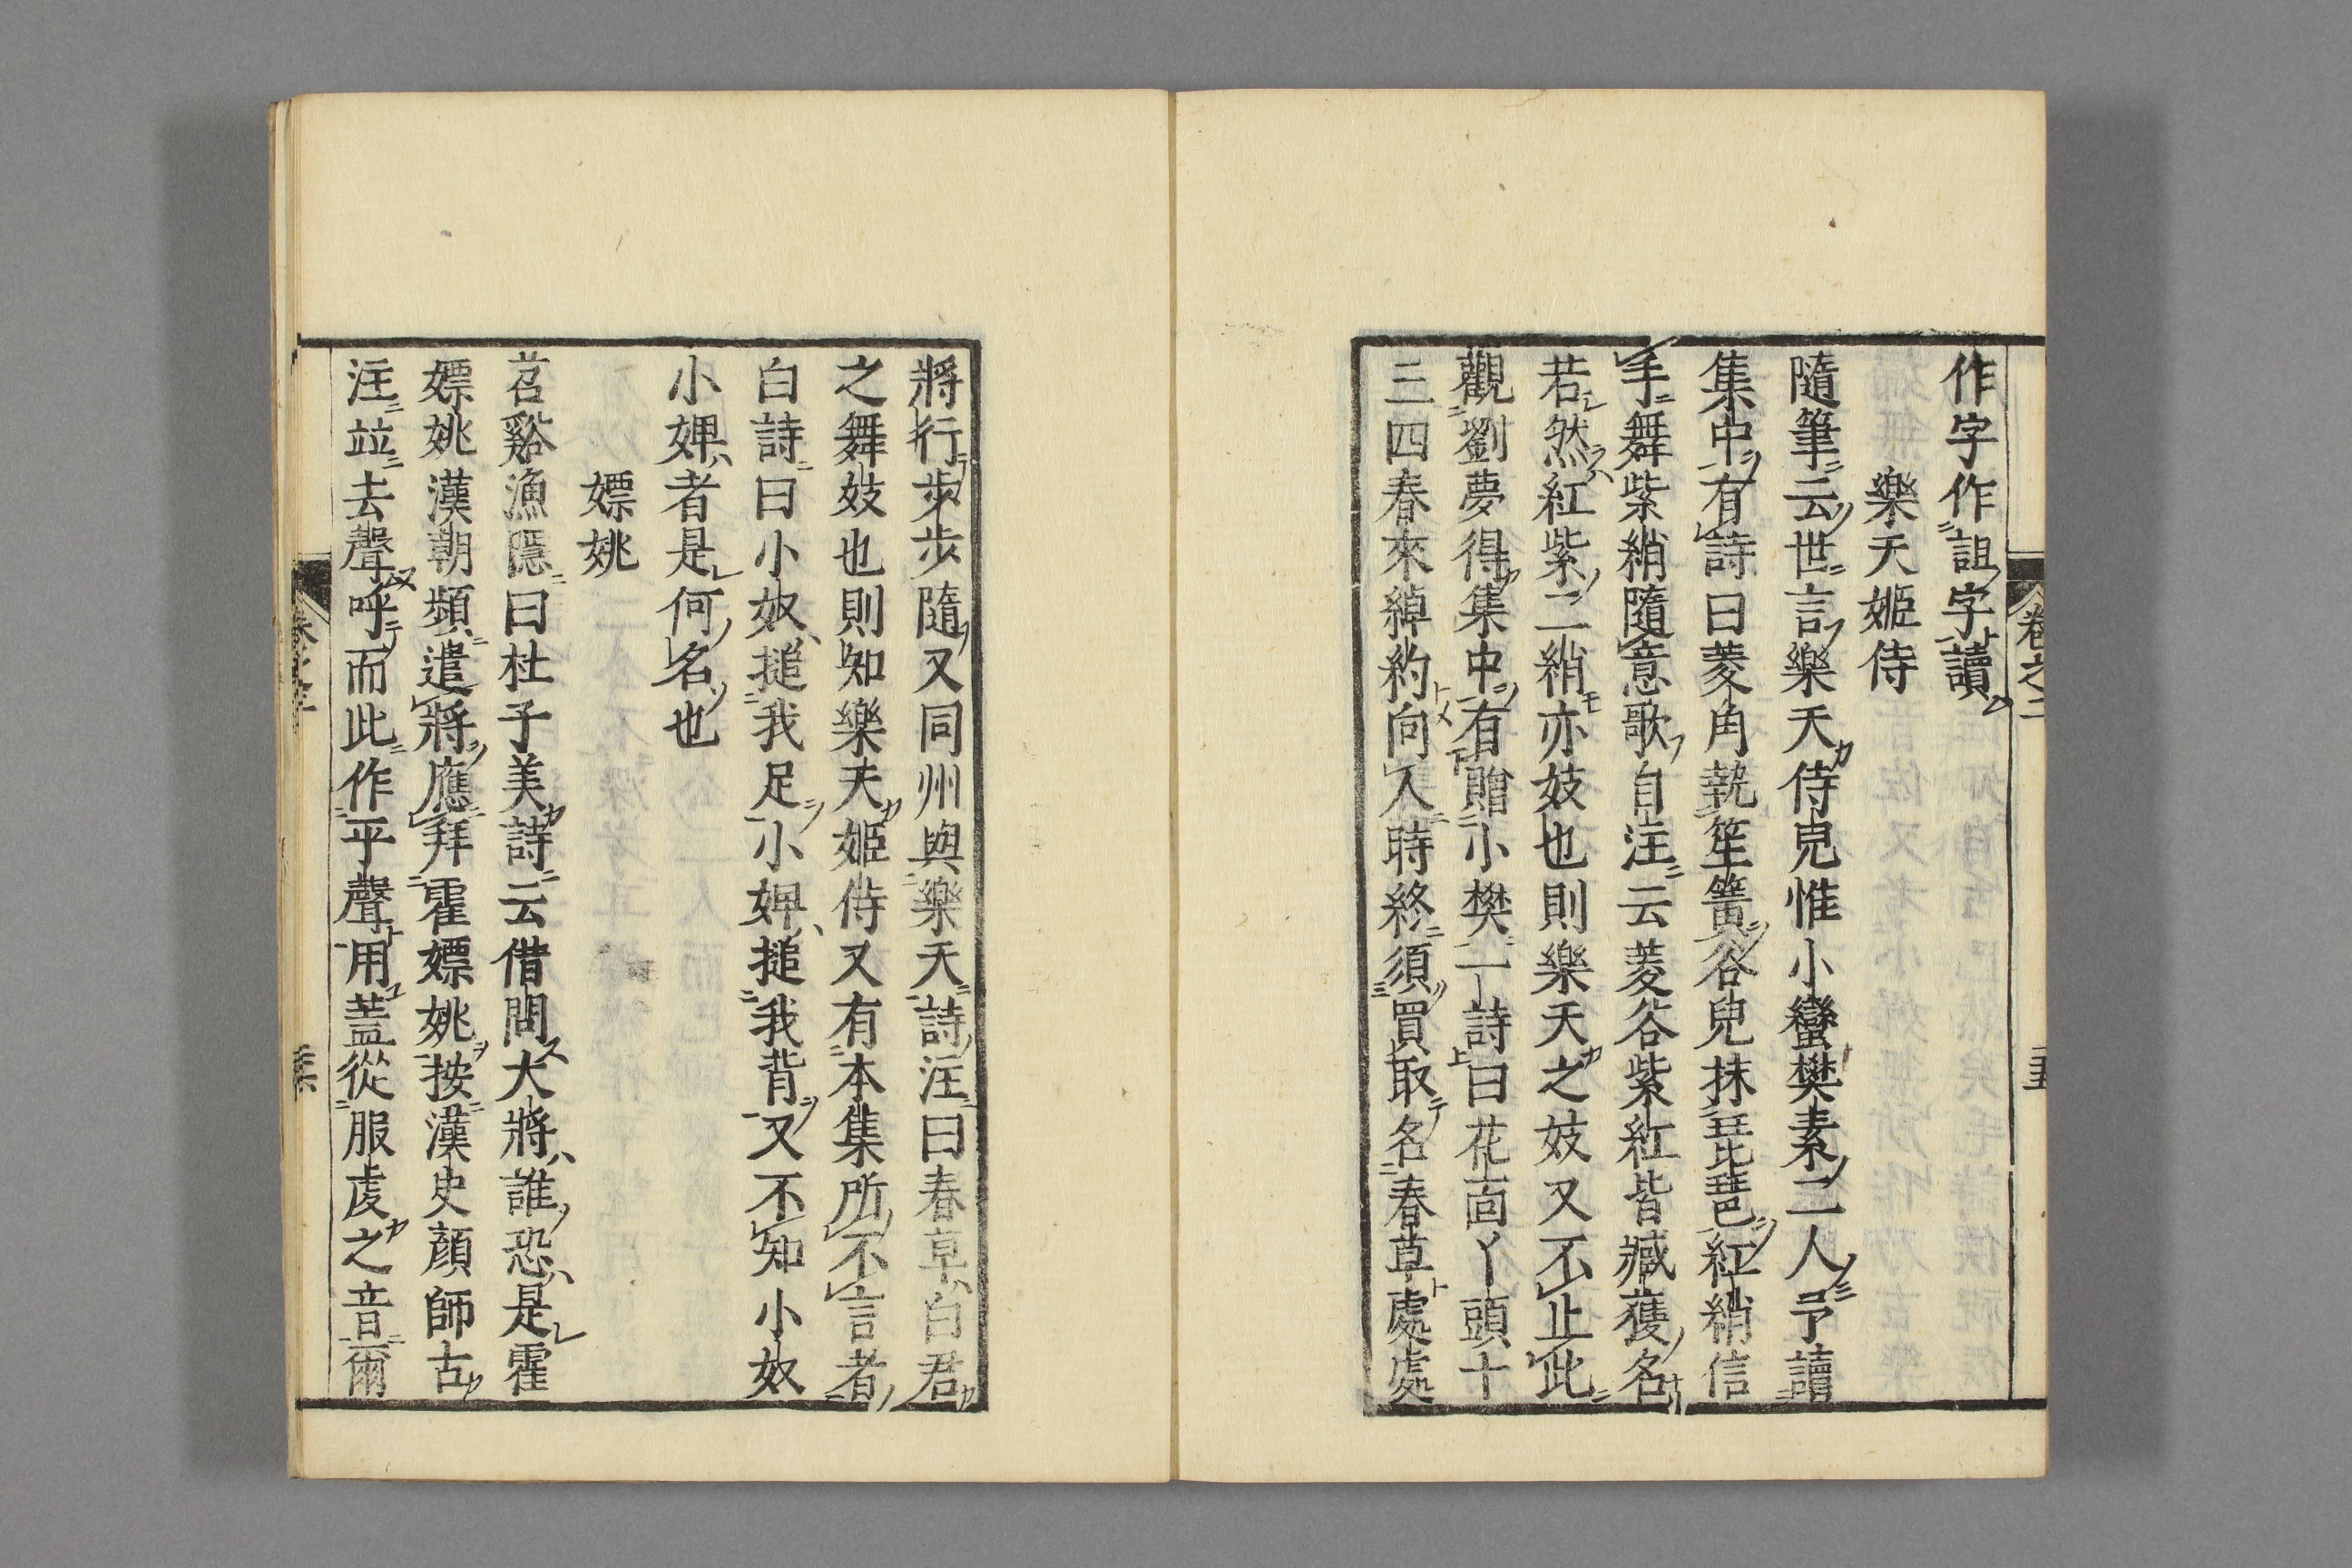 作字作詛字讀
樂天姬侍
隨筆云世言樂天侍兒惟小蠻樊素二人予讀
集中有詩曰菱角執笙簧谷兒抹琵琶紅綃信
手舞紫綃隨意歌自注云菱谷紫紅皆臧獲名
若然紅紫二綃亦妓也則樂天之妓又不止此
觀劉夢得集中有贈小樊一詩曰花靣丫頭十
三四春來綽約向人時終須買取名春草處處
將行步步隨又同州與樂天詩注曰春草白君
之舞妓也則知樂天姬侍又有本集所不言者
白詩曰小奴搥我足小婢搥我背又不知小奴
小婢者是何名也
嫖姚
苕谿漁隱曰杜子美詩云借問大將誰恐是霍
嫖姚漢朝頻遣將應拜霍嫖姚按漢史顔師古
注竝去聲呼而此作平聲用葢從服虔之音爾